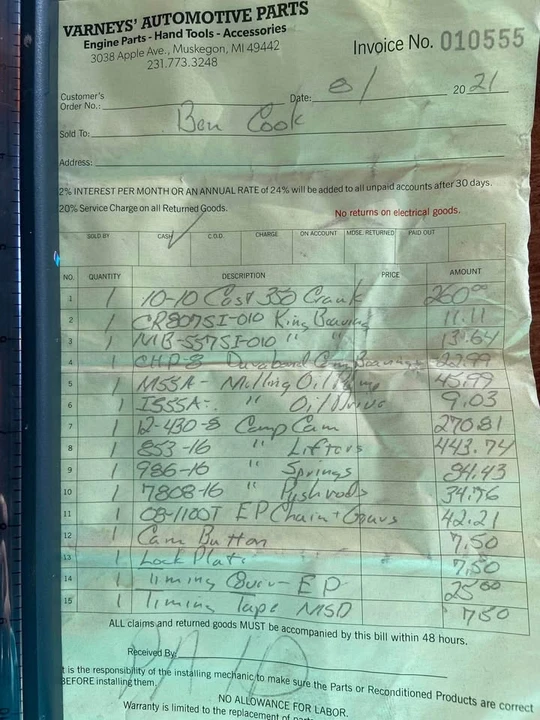 VARNEYS' AUTOMOTIVE PARTS
Engine Parts - Hand Tools - Accessories
3038 Apple Ave., Muskegon, MI 49442
231.773.3248
Invoice No. 010555
Customer's
Order No.: Date: 8/ 20 21
Sold To: Ben Cook
Address:
2% INTEREST PER MONTH OR AN ANNUAL RATE of 24% will be added to all unpaid accounts after 30 days.
20% Service Charge on all Returned Goods.
No returns on electrical goods.
SOLD BY CASH C.O.D. CHARGE ON ACCOUNT MDSE. RETURNED PAID OUT
NO. QUANTITY DESCRIPTION PRICE AMOUNT
1 1 10-10 Cast 350 Crank 260.00
2 1 CR807SI-010 King Bearing 11.11
3 1 MB-557SI-010 " " 13.64
4 1 CHP-8 Durabond Cam Bearings 22.99
5 1 M55A- Melling Oil Pump 43.99
6 1 IS55A- " Oil Drive 9.03
7 1 12-430-8 Comp Cam 270.81
8 1 853-16 " Lifters 443.74
9 1 986-16 " Springs 84.43
10 1 7808-16 " Pushrods 34.76
11 1 08-1100T EP Chain + Gears 42.21
12 1 Cam Button 7.50
13 1 Lock Plate 7.50
14 1 Timing Cover - EP 25.00
15 1 Timing Tape MSD 7.50
ALL claims and returned goods MUST be accompanied by this bill within 48 hours.
Received By: PAID
t is the responsibility of the installing mechanic to make sure the Parts or Reconditioned Products are correct
BEFORE installing them.
NO ALLOWANCE FOR LABOR.
Warranty is limited to the replacement of